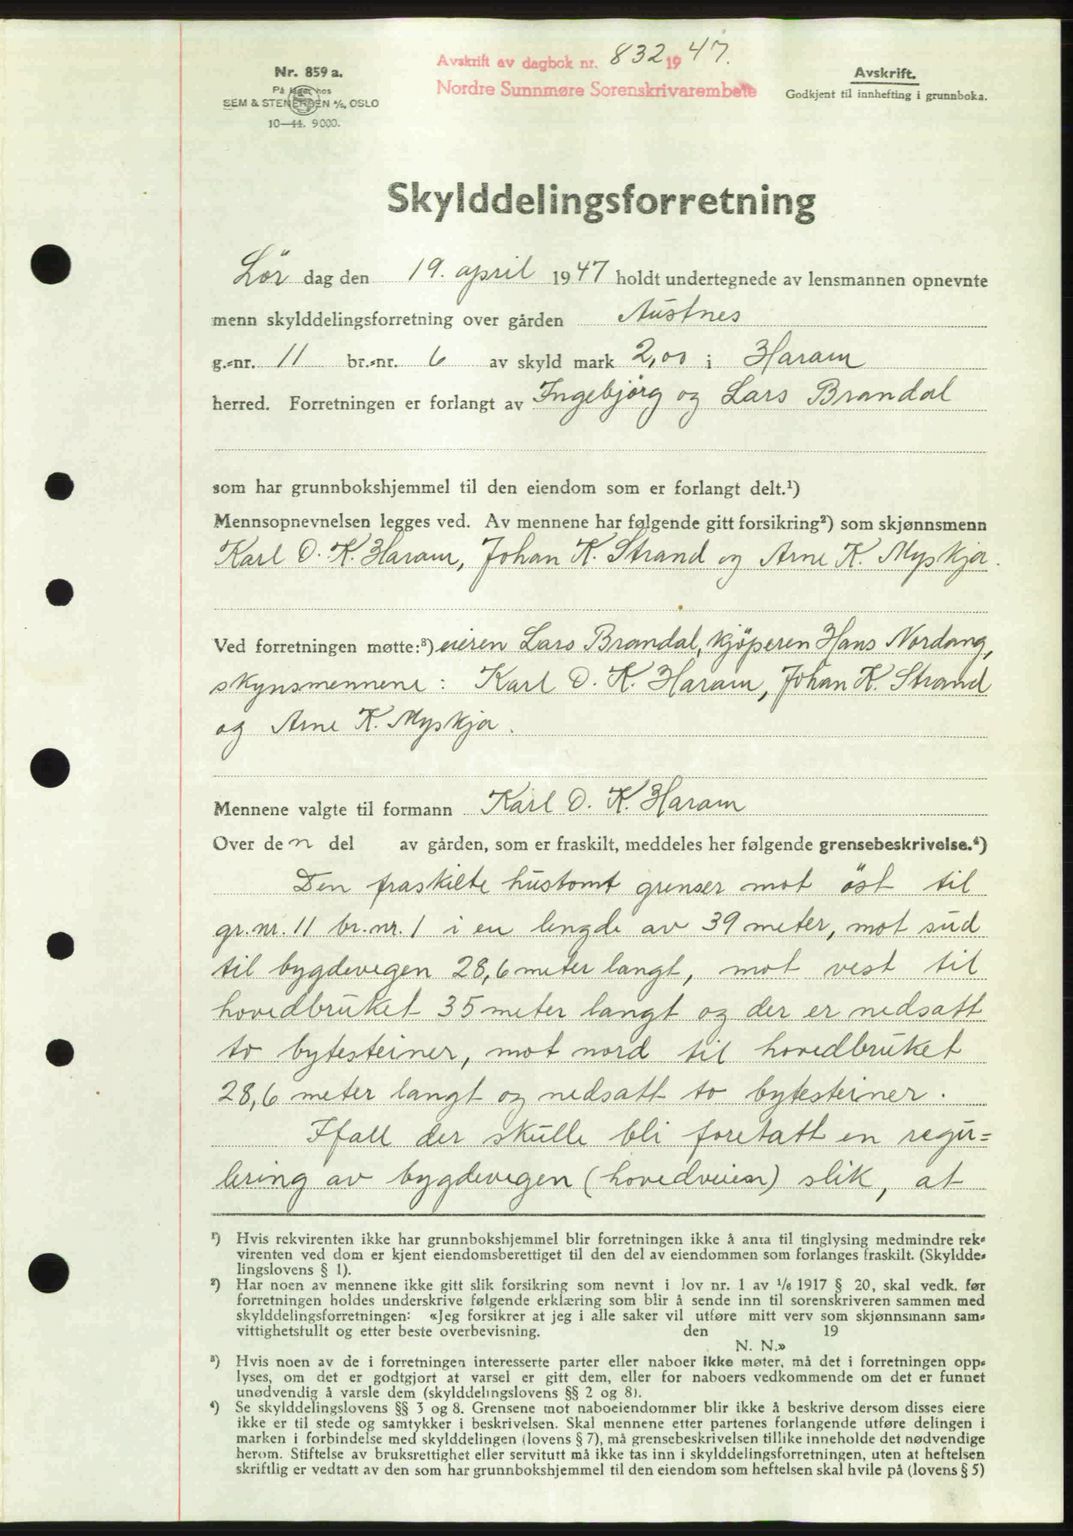 Nr. 859 a.
På lager hos
SEM & STENERSEN A/S, OSLO
10—44. 9000.
Avskrift av dagbok nr. 832 1947.
Nordre Sunnmøre Sorenskrivarembete
Avskrift.
Godkjent til innhefting i grunnboka.
Skylddelingsforretning
Lör dag den 19. april 1947 holdt undertegnede av lensmannen opnevnte
menn skylddelingsforretning over gården Austnes
g.-nr. 11 br.-nr. 6 av skyld mark 2,00 i Haram
herred. Forretningen er forlangt av Ingebjörg og Lars Brandal
som har grunnbokshjemmel til den eiendom som er forlangt delt.¹)
Mennsopnevnelsen legges ved. Av mennene har følgende gitt forsikring²) som skjønnsmenn
Karl O. K. Haram, Johan K. Strand og Arne K. Myskja.
Ved forretningen møtte:³) eieren Lars Brandal, kjöperen Hans Nordang,
skynsmennene: Karl O. K. Haram, Johan K. Strand
og Arne K. Myskja.
Mennene valgte til formann Karl O. K. Haram
Over den del av gården, som er fraskilt, meddeles her følgende grensebeskrivelse.⁴)
Den fraskilte hustomt grenser mot öst til
gr.nr. 11 br.nr. 1 i en lengde av 39 meter, mot süd
til bygdevegen 28,6 meter langt, mot vest til
hovedbrüket 35 meter langt og der er nedsatt
to bytesteiner, mot nord til hovedbrüket
28,6 meter langt og nedsatt to bytesteiner.
Ifall der skülle bli foretatt en regü=
lering av bygdevegen (hovedveien) slik, at
¹) Hvis rekvirenten ikke har grunnbokshjemmel blir forretningen ikke å anta til tinglysing medmindre rek-
virenten ved dom er kjent eiendomsberettiget til den del av eiendommen som forlanges fraskilt. (Skyldde-
lingslovens § 1).
²) Har noen av mennene ikke gitt slik forsikring som nevnt i lov nr. 1 av 1/6 1917 § 20, skal vedk. før
forretningen holdes underskrive følgende erklæring som blir å sende inn til sorenskriveren sammen med
skylddelingsforretningen: «Jeg forsikrer at jeg i alle saker vil utføre mitt verv som skjønnsmann sam-
vittighetsfullt og etter beste overbevisning. den 19
N. N.»
³) Hvis noen av de i forretningen interesserte parter eller naboer ikke møter, må det i forretningen opp-
lyses, om det er godtgjort at varsel er gitt dem, eller for naboers vedkommende om det er funnet
unødvendig å varsle dem (skylddelingslovens §§ 2 og 8).
⁴) Se skylddelingslovens §§ 3 og 8. Grensene mot naboeiendommer blir ikke å beskrive dersom disses eiere
ikke er til stede og samtykker i beskrivelsen. Skal mennene etter partenes forlangende utføre delingen i
marken i forbindelse med skylddelingen (lovens § 7), må grensebeskrivelsen tillike inneholde det nødvendige
herom. Stiftelse av bruksrettighet eller servitutt må ikke tas inn i skylddelingsforretningen, uten at heftelsen
skriftlig er vedtatt av den som har grunnbokshjemmel til den eiendom som heftelsen skal hvile på (lovens § 5)